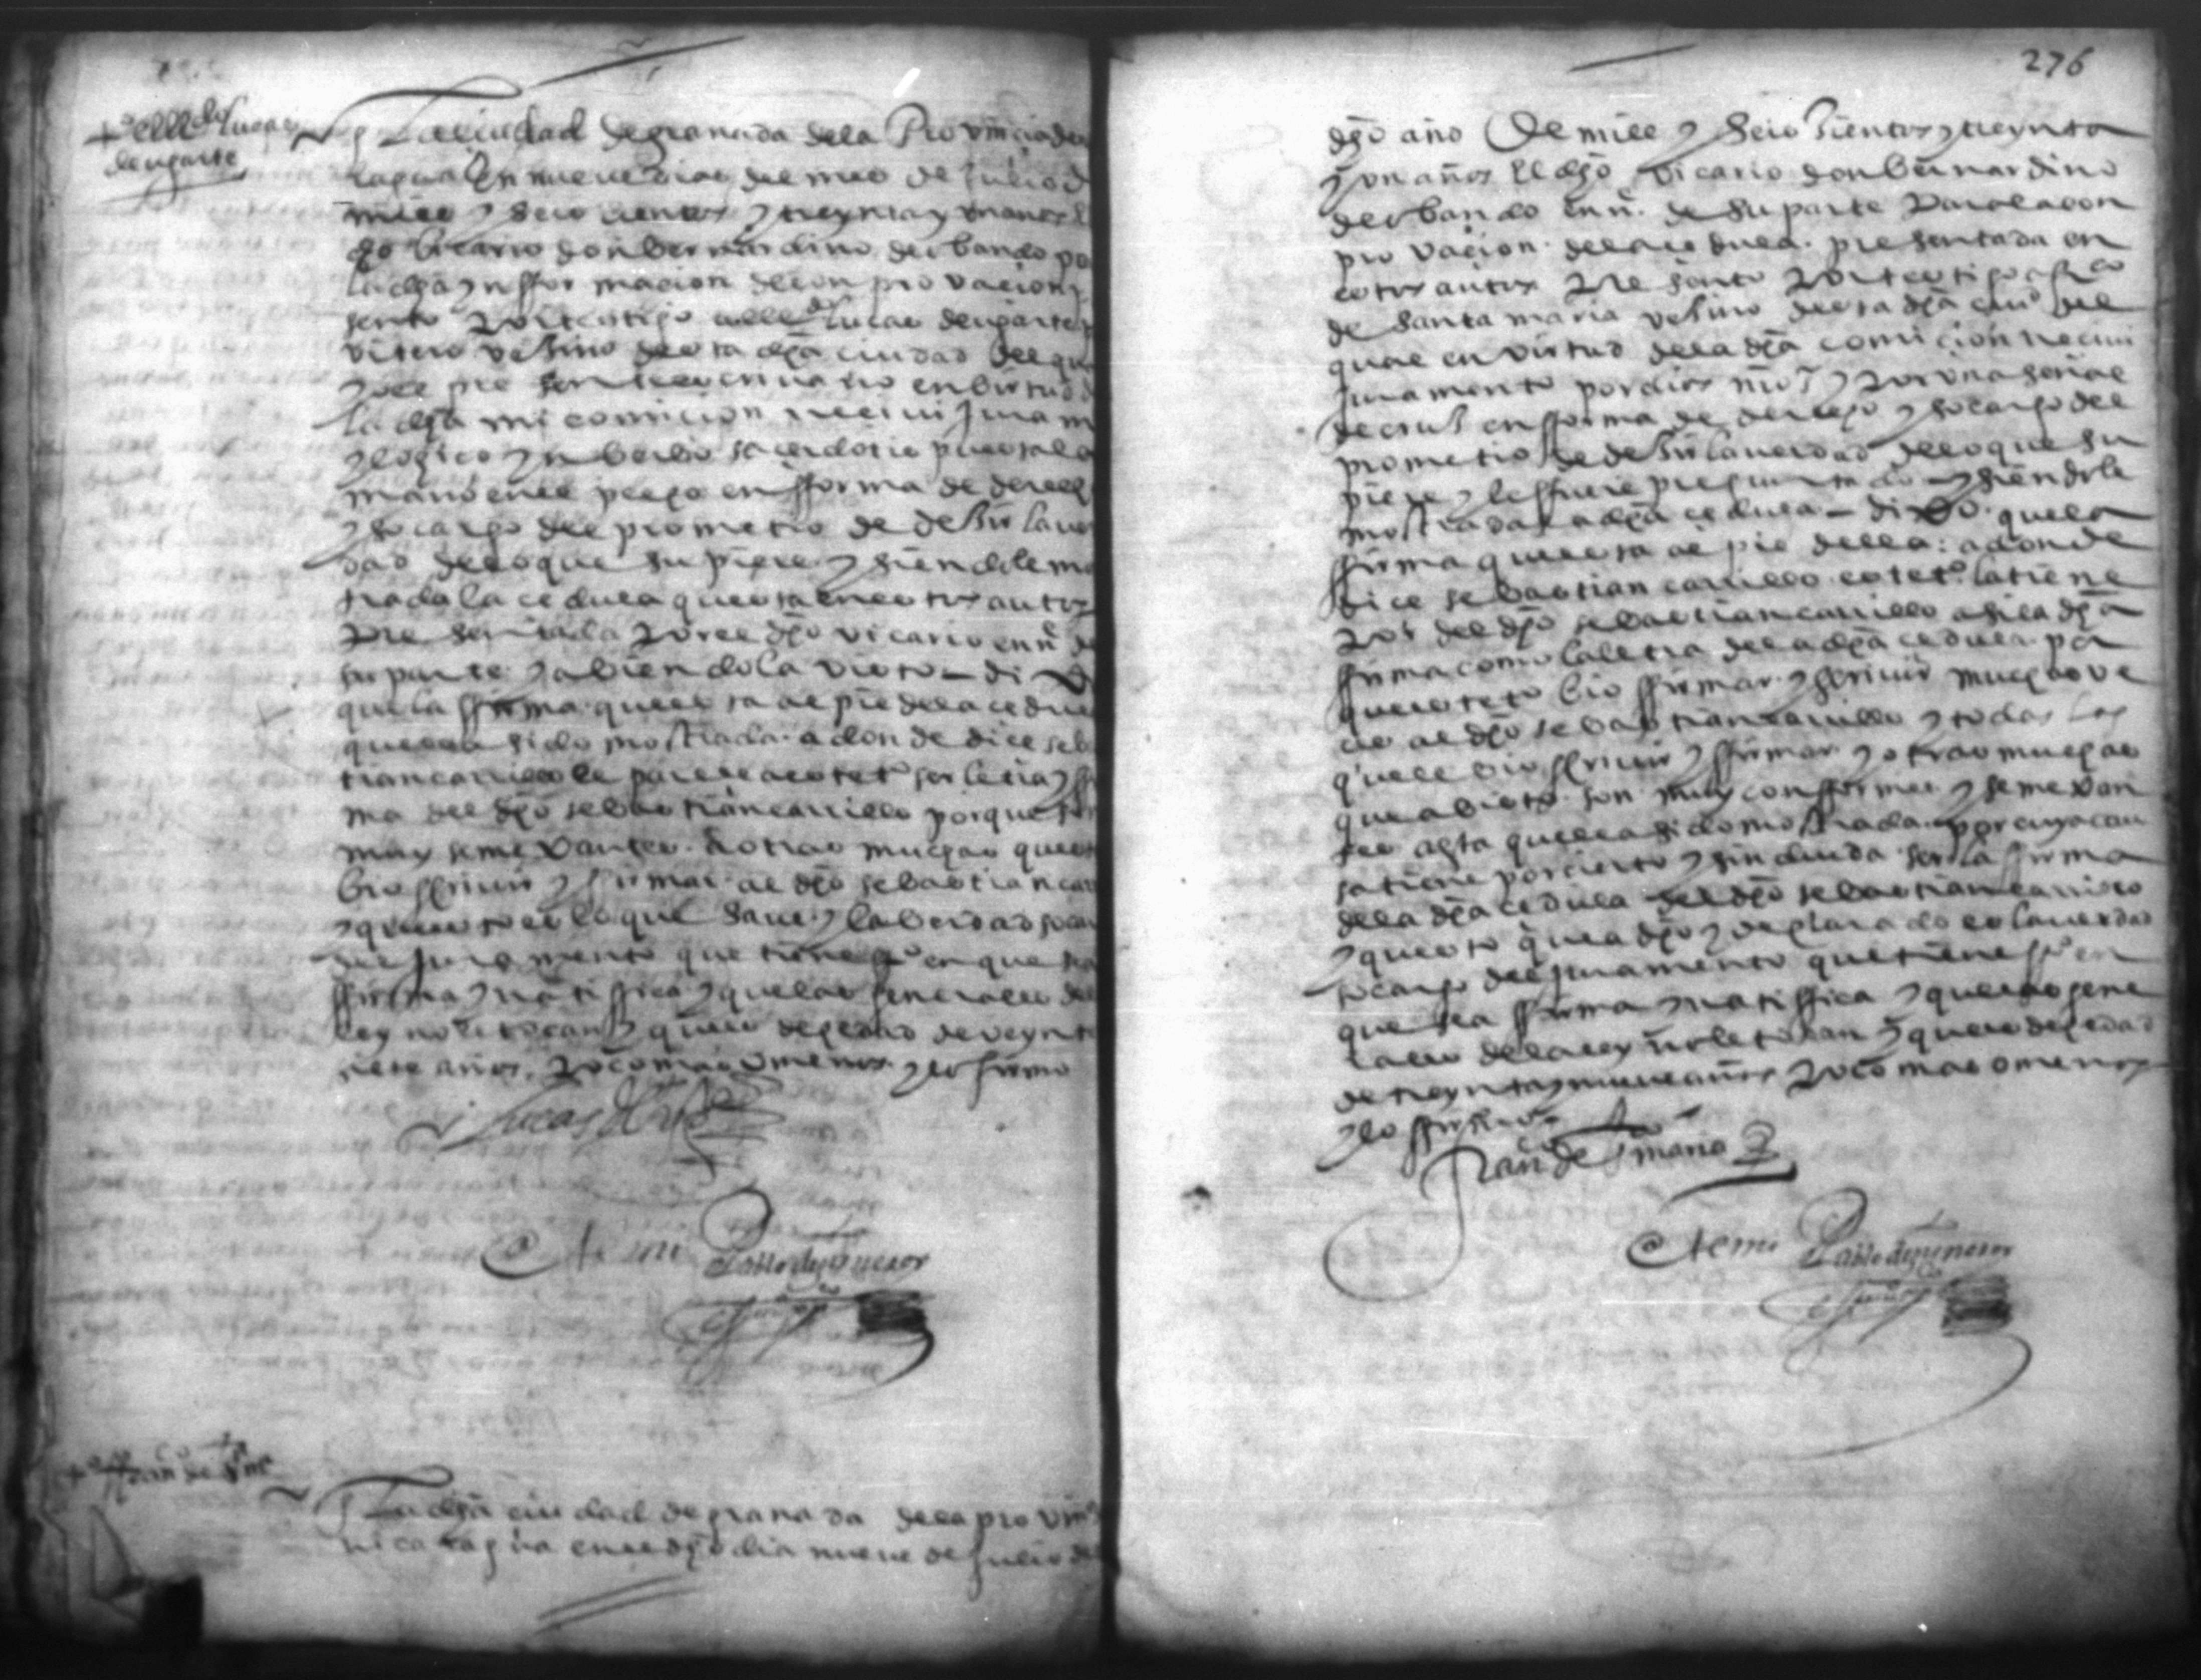 t.o el lldo lucas
de ugarte
En La ciudad de granada dela Provincia de
ragua en nueve dias del mes de Julio d
mill y seis cientos y treynta y un años
dho bicario don bernardino de obando
la dha ynfformacion de conprovacion
sento por testigo al lldo lucas de ugarte
vitero vesino desta dha ciudad del qu
yo el presente en virtud d
la dha mi comicion receui Juram
yn berbo sacerdotis puesta la
mano en el pecho en fforma de derech
y so cargo del prometio de desir la ver
dad de lo que supiere y siendole mos
trada la cedula que esta en estos autos
presentada por el dho vicario en nє de
su parte y abiendola visto - dixo
que la ffirma que esta al pie dela cedu
que le a sido mostrada a donde dice seba
tian carrillo le parece a este to ser letra y ffir
ma del dho sebastian carrillo porque
muy semexantes a otras muchas que
bio scriuir y firmar al dho sebastian carr
y que esto es lo que saue y la berdad so car
del Juramento que tiene ffo en que se a
ffirma y ratiffica y que las generales de
ley no le tocan y que es de hedad de veynt
siete años poco mas o menos y lo firmo
Lucas de Ugarte
Ante mi Pablo de
t.o ffranco de sta
En la dha ciudad de granada dela provinci
nicaragua en el dho dia nueve de Julio de
276
dho año De mill y seis sientos y treynta
y un años El dho vicario don bernardino
de obando en n. de su parte para la con
provacion de la cedula presentada en
estos autos Presento por testigo a franco
de santa maria vesino desta dha ciud del
qual en virtud dela dha comicion receui
Juramento por dios nro sr y por una señal
de crus en fforma de derecho y so cargo del
prometio de desir la verdad de lo que su
piere y le ffuere preguntado y siendole
mostrada la dha cedula - dixo que la
ffirma que esta al pie della: a donde
dice sebastian carrillo este to la tiene
por del dho sebastian carrillo asi la dha
ffirma como la letra de la dha cedula por
que este to bio ffirmar y scriuir muchas ve
ces al dho sebastian carrillo y todas las
que le bio scriuir y ffirmar y otras muchas
que a bisto son muy confformes y semexan
tes a esta que le a sido mostrada por cuya cau
sa tiene por cierto y sin duda ser la firma
dela dha cedula del dho sebastian carrillo
y que esto que a dho y declarado es la verdad
so cargo del juramento que tiene ffo en
que se a ffirma y ratiffica y que las gene
rales de la ley no le tocan y que es de hedad
de treynta y nueve años poco mas o menos
y lo ffirmo
Franco de Sta maria
Ante mi Pablo de